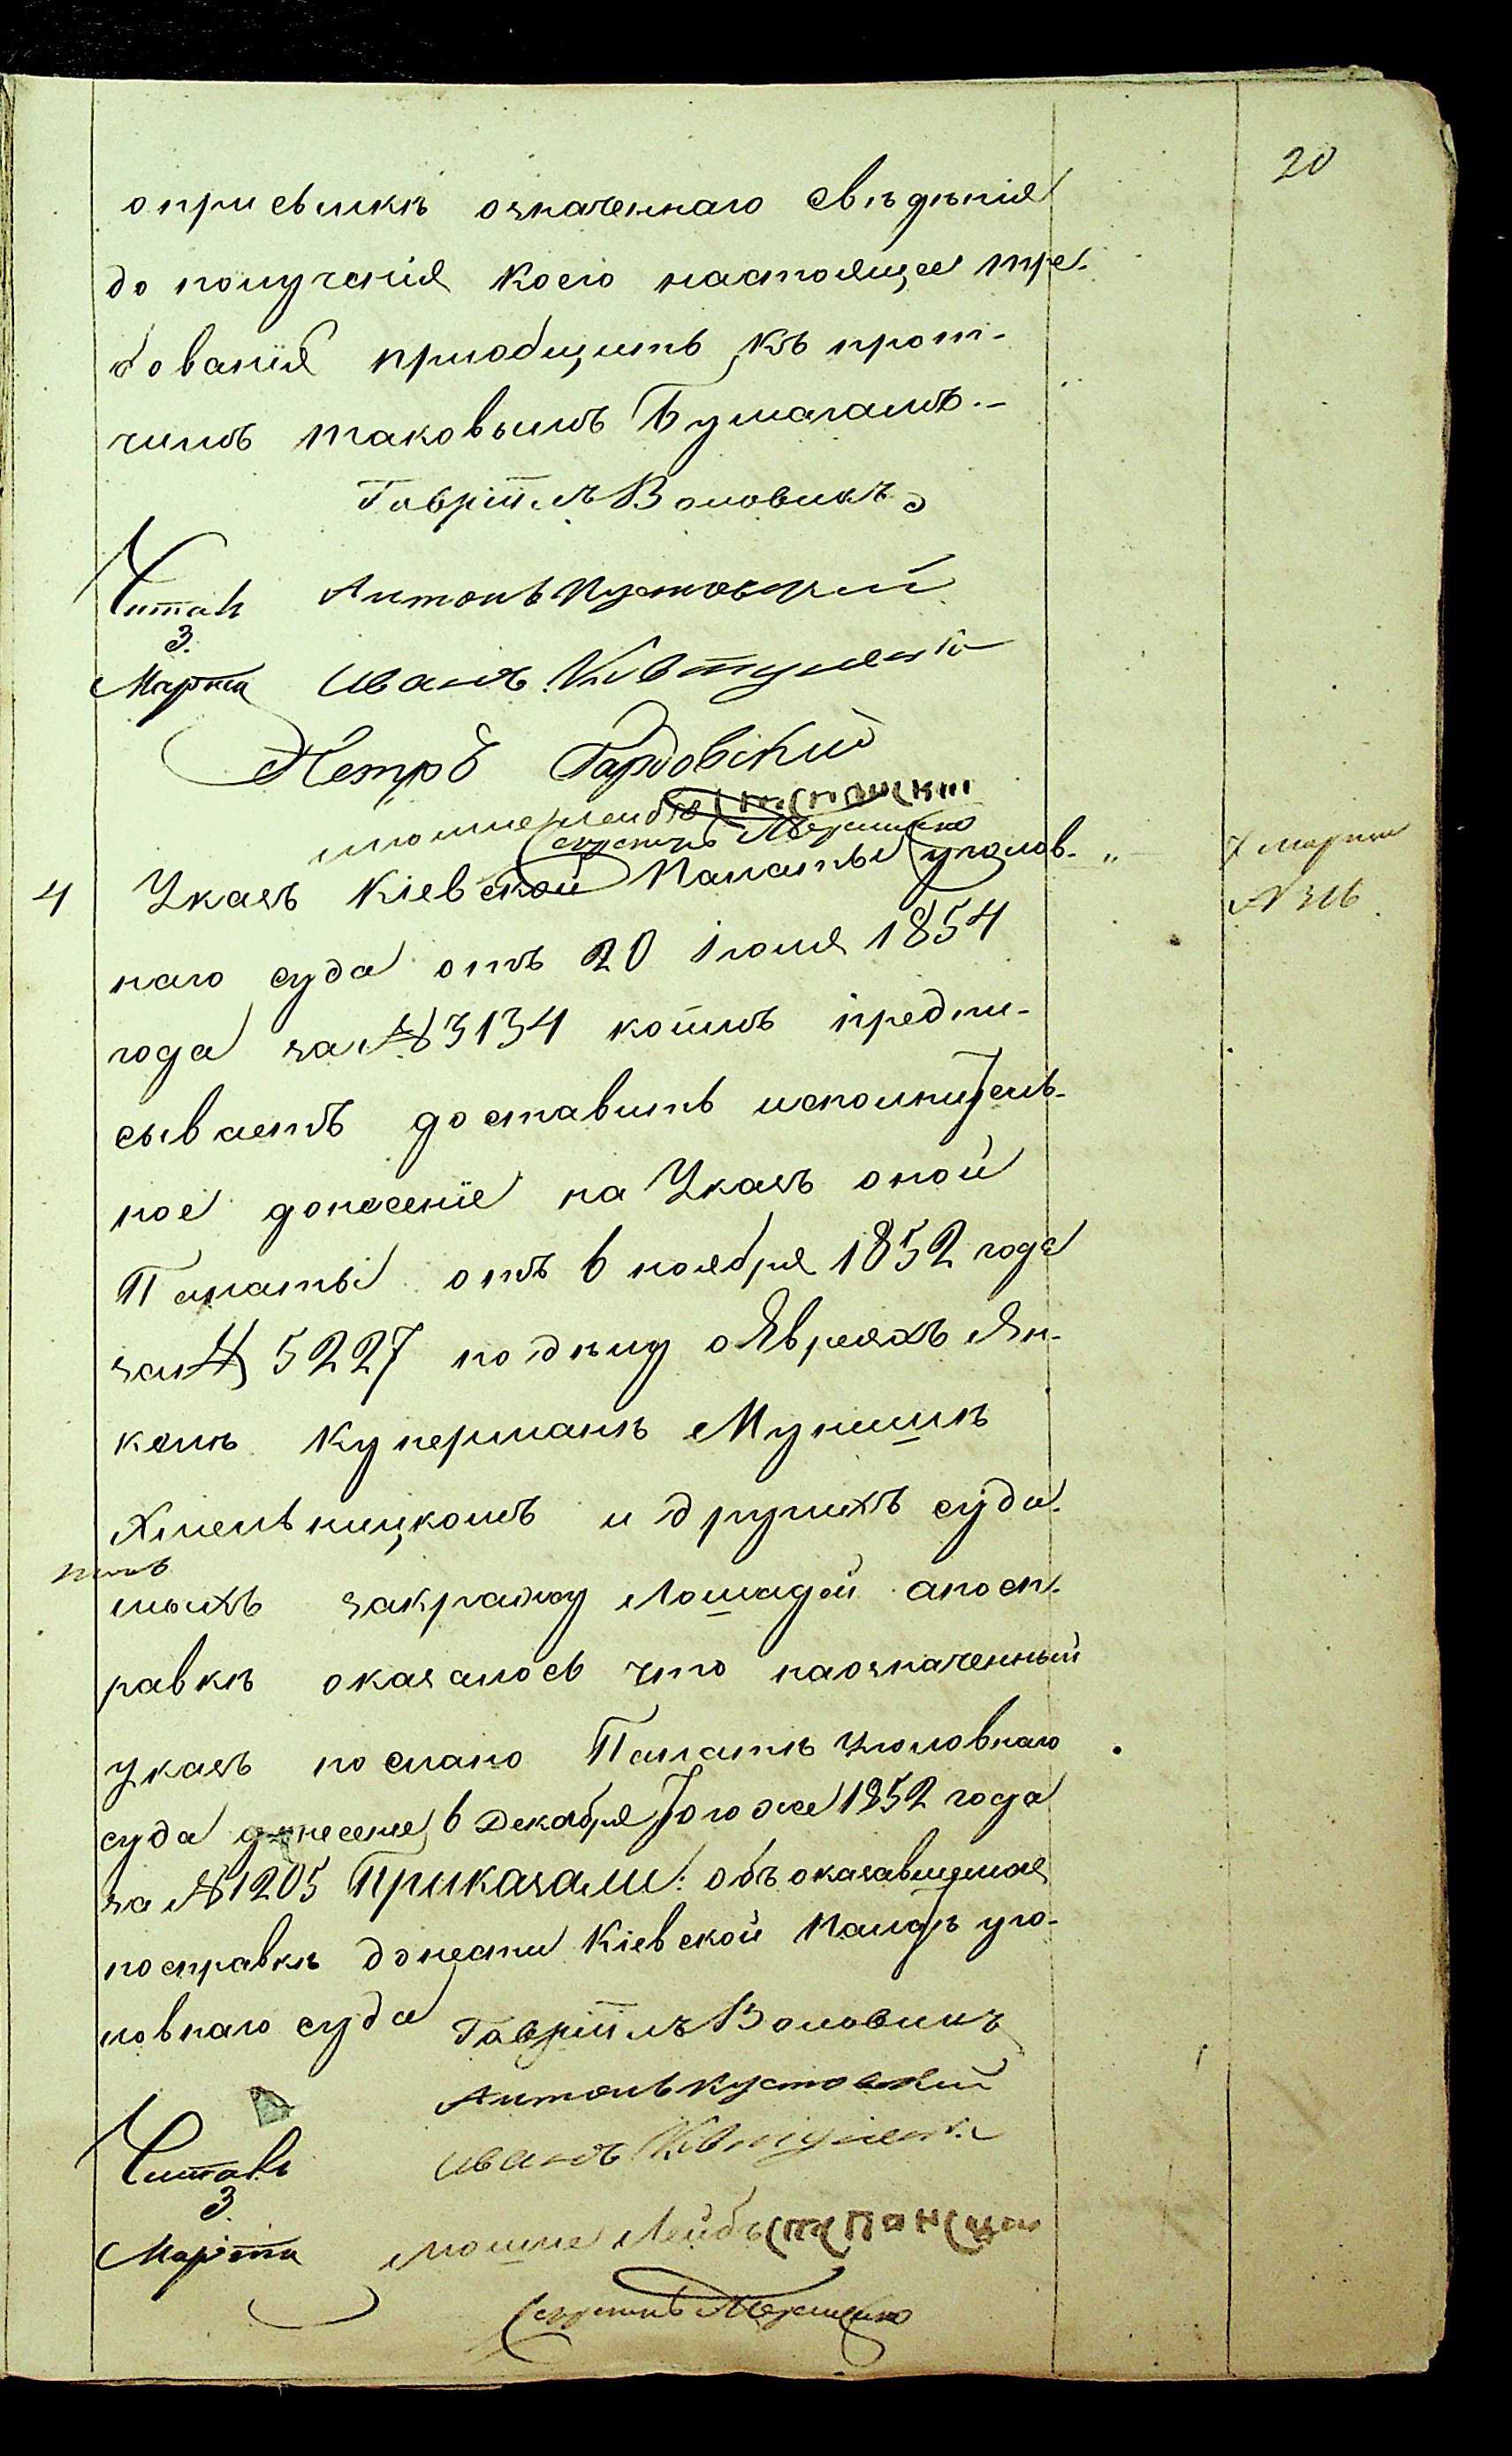 20
о присылкѣ означеннаго свѣдѣнія
до полученія коего настоящее тре-
бованія приобщить къ прот-
чимъ таковымъ бумагамъ.-
Гавріилъ Воловикъ
Читалъ Антонъ Кустовскій
3.
Марта Иванъ Ковтуненко
Петръ Гардовскій
мошко лейбъ
4 Указъ Кіевской Палаты уголов-
7 марта
№ 316
наго суда отъ 20 іюля 1854
года за № 3134 коимъ предпи-
сываетъ доставить исполнитель-
ное донесеніе на Указъ оной
Палаты отъ 6 ноября 1852 года
за № 5227 по дѣлу о Евреяхъ Ян-
келѣ Куперманѣ Мунишѣ
Хмельницкомъ и другихъ суди-
мыхъ закражу Лошадей апосп-
равкѣ оказалось что наозначенный
указъ послано Палатѣ Уголовнаго
суда донесеніе 6 Декабря Тогоже 1852 года
за № 1205 Приказали: объ оказавшемся
посправкѣ донести Кіевской Палатѣ уго-
ловнаго суда Гавріилъ Воловикъ
Антонъ Кустовскій
Читалъ Иванъ Ковтуненко
3.
Марта мошко Лейбъ